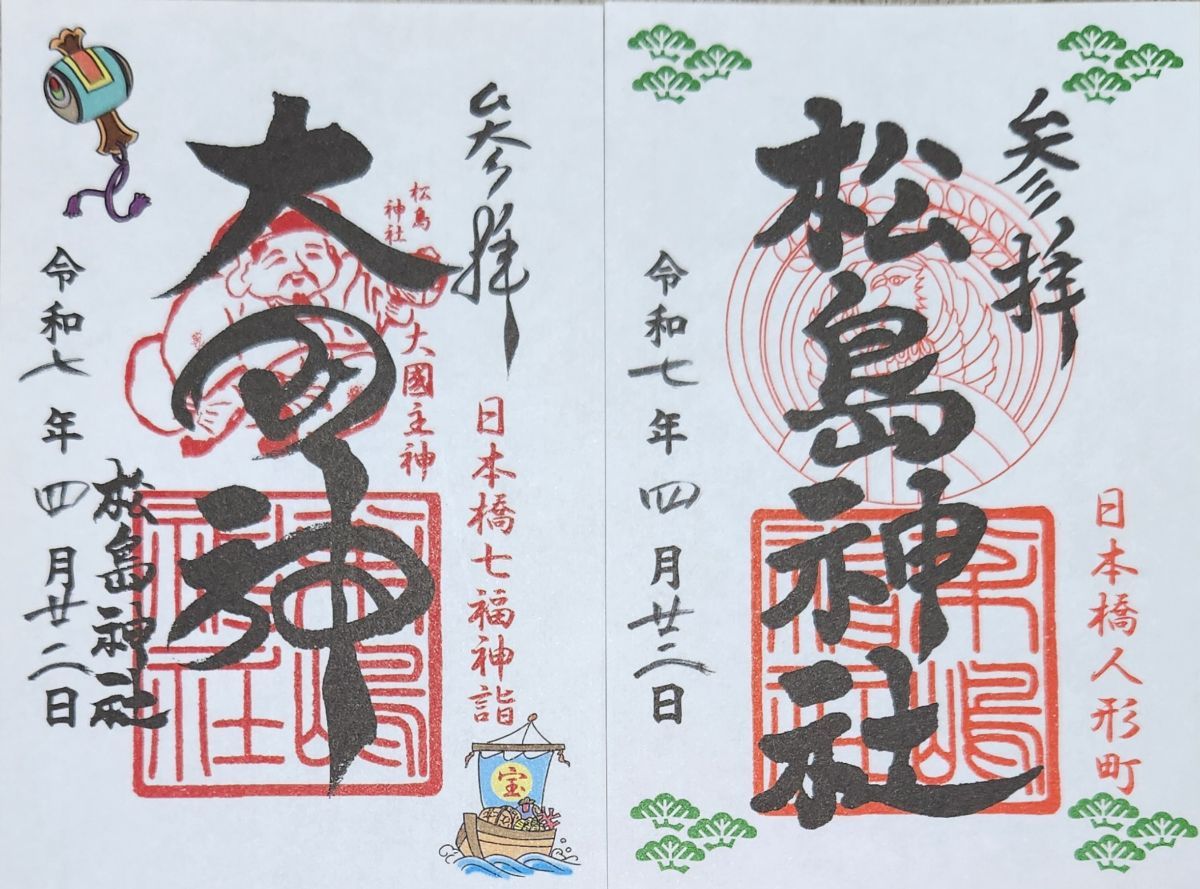 参拝
日本橋七福神詣
松島
神社
大國主神
大国神
松島神社
令和七年四月廿二日
宝
参拝
日本橋人形町
松島神社
令和七年四月廿二日